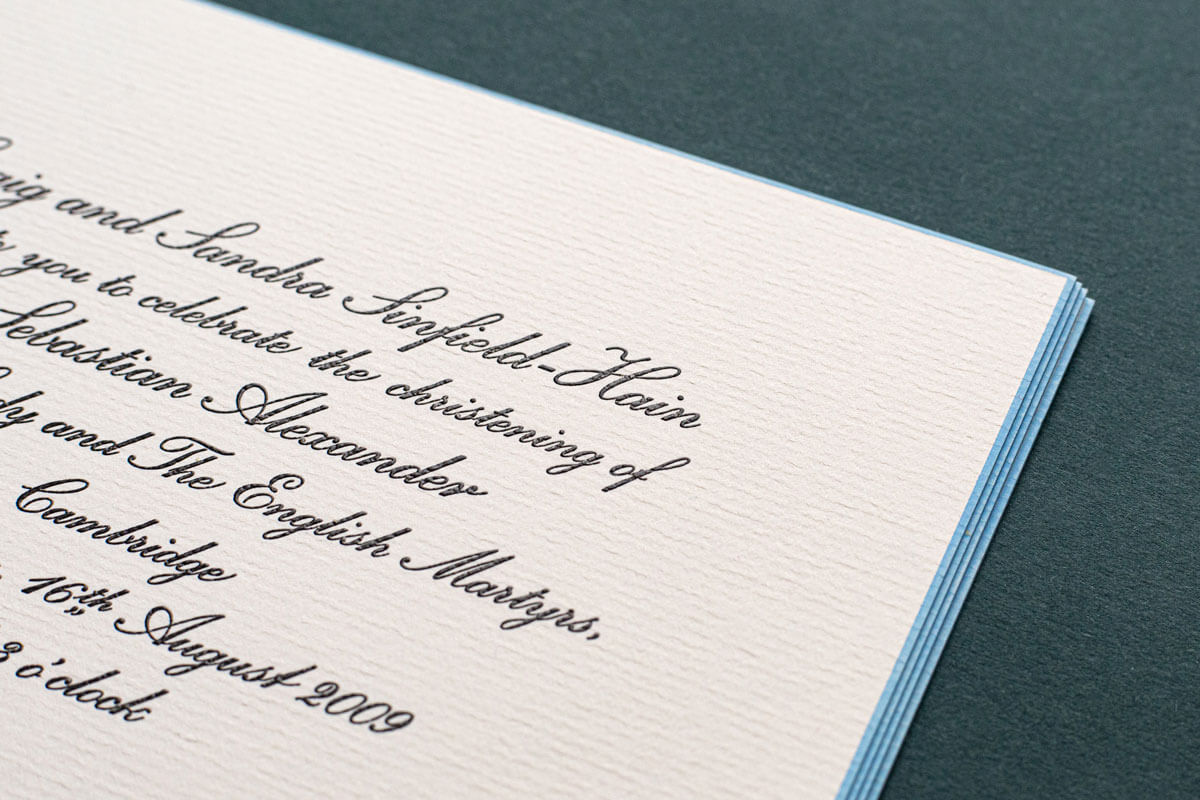 and Sandra Sinfield-Hain
you to celebrate the christening of
Sebastian Alexander
and The English Martyrs,
Cambridge
16th August 2009
3 o'clock